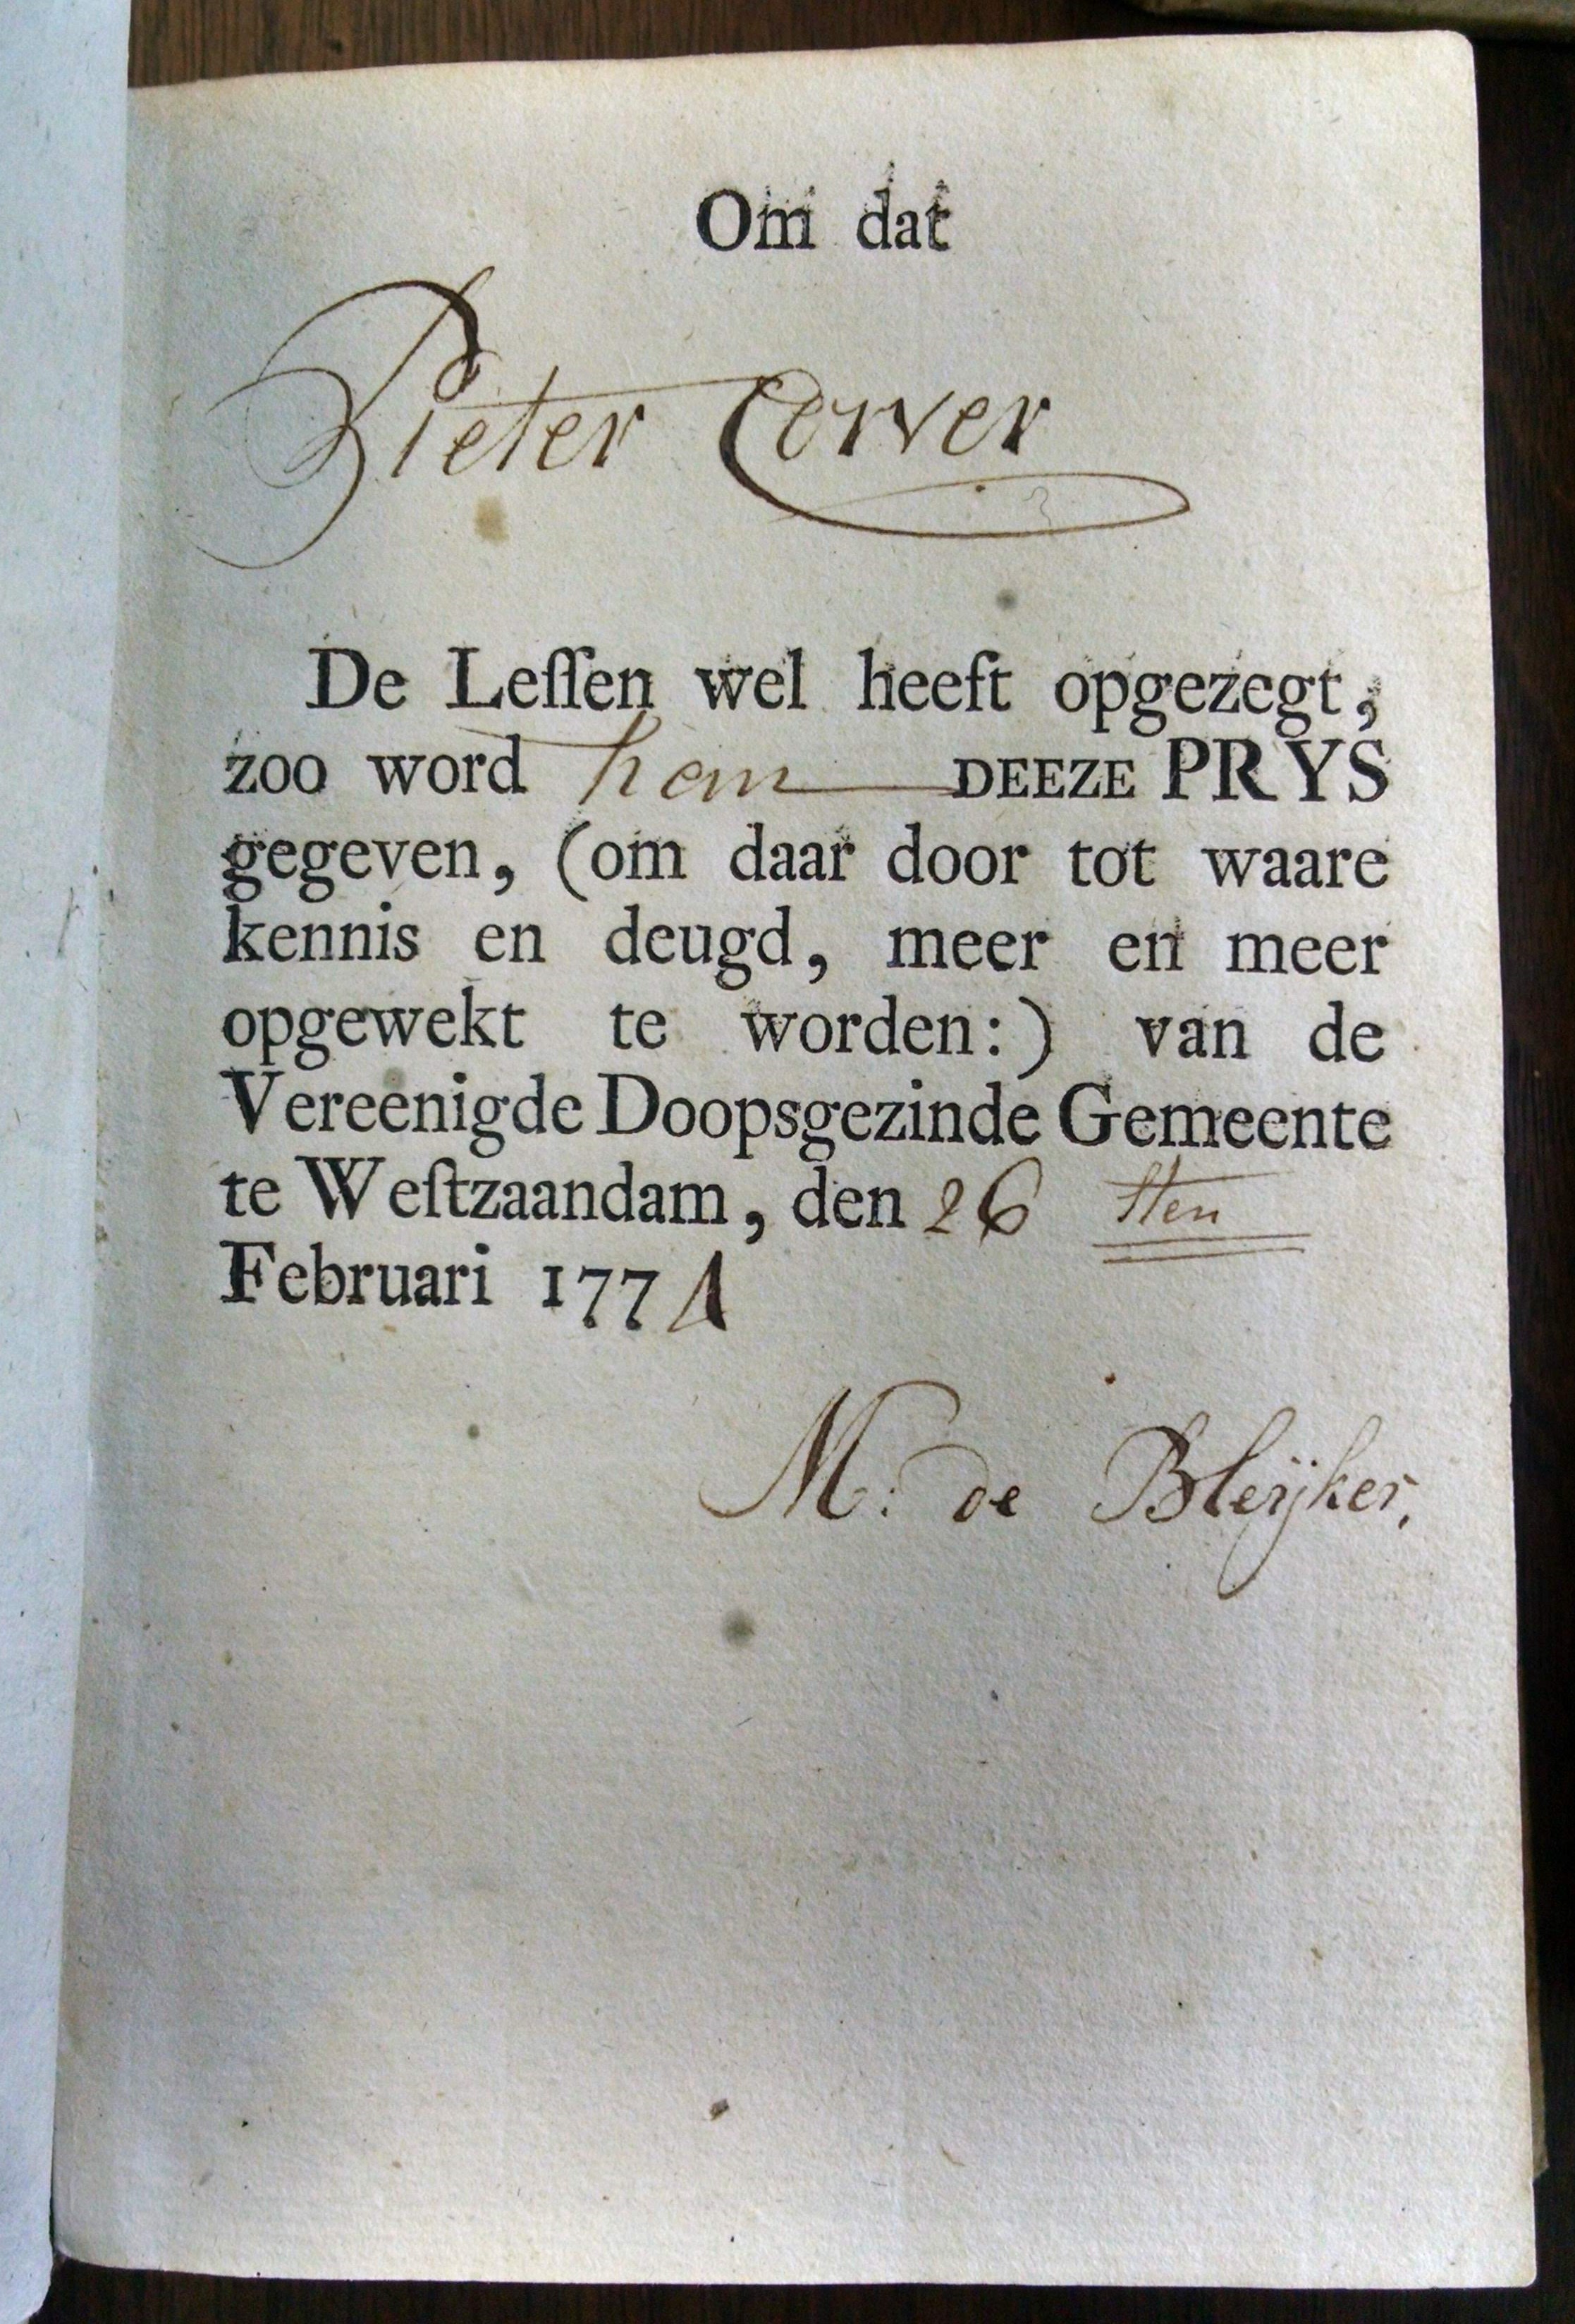 Om dat
Pieter Corver
De Leſſen wel heeft opgezegt,
zoo word hem DEEZE PRYS
gegeven, (om daar door tot waare
kennis en deugd, meer en meer
opgewekt te worden:) van de
Vereenigde Doopsgezinde Gemeente
te Weſtzaandam, den 26 sten
Februari 1771
M: de Bleÿker,